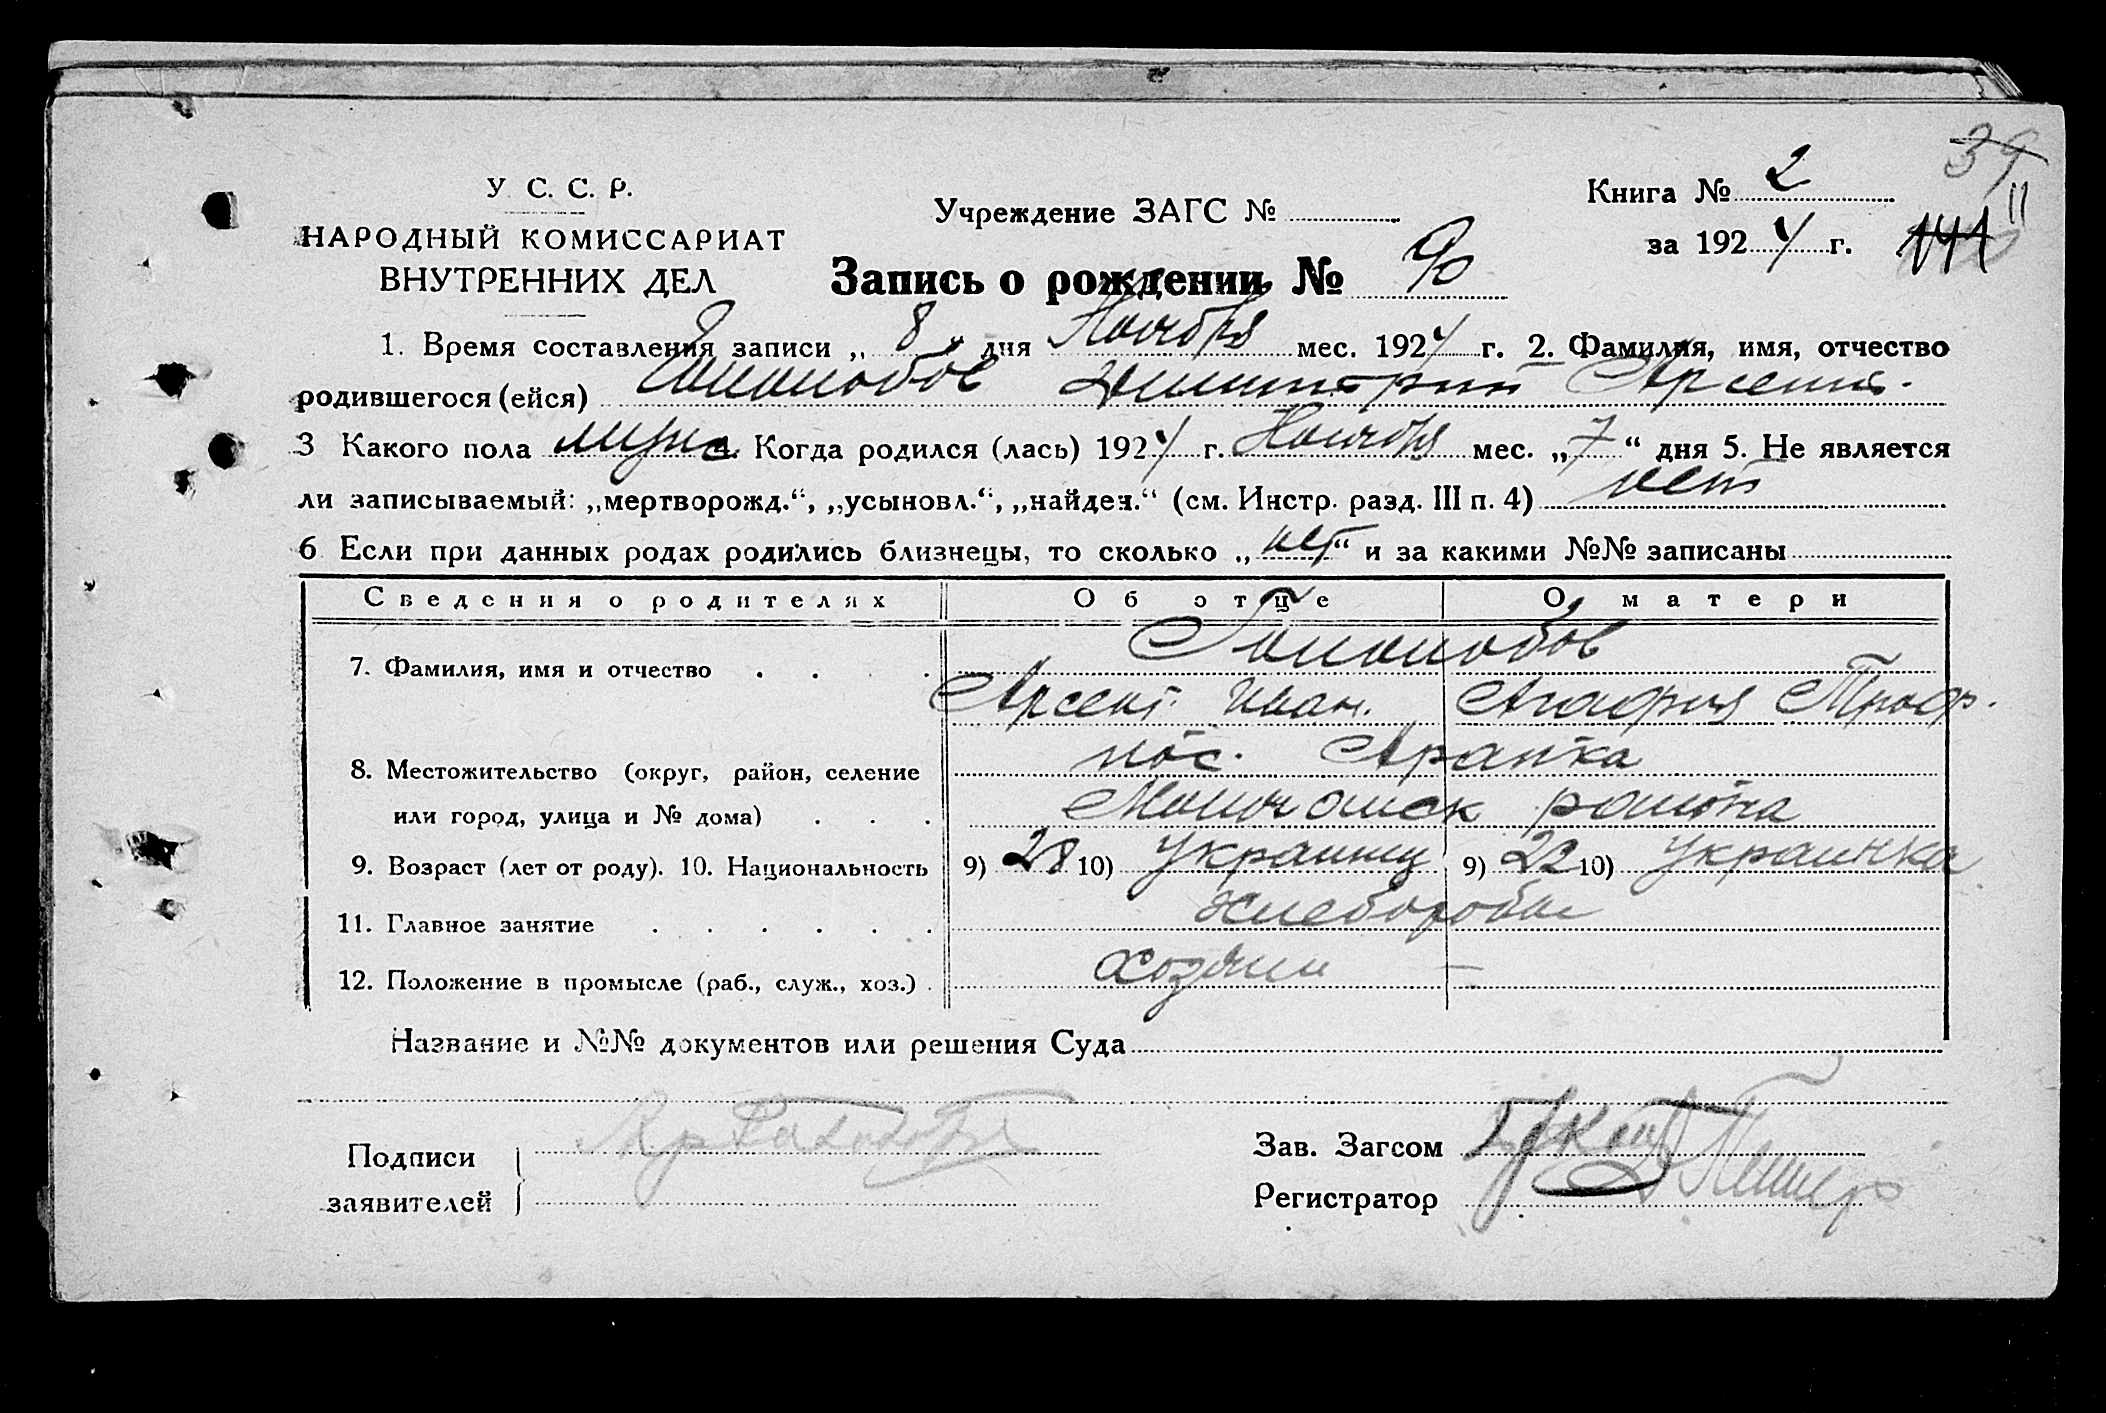 39
11
141
У. С. С. Р.
НАРОДНЫЙ КОМИССАРИАТ
ВНУТРЕННИХ ДЕЛ
Учреждение ЗАГС №
Книга № 2
за 1924 г.
Запись о рождении № 90
1. Время составления записи „ 8 “ дня Ноября мес. 1924 г. 2. Фамилия, имя, отчество
родившегося (ейся) Димитрий Арсент.
3 Какого пола муж. Когда родился (лась) 1924 г. Ноября мес. „7“ дня 5. Не является
ли записываемый: „мертворожд.“, „усыновл.“, „найден.“ (см. Инстр. разд. III п. 4) нет
6 Если при данных родах родились близнецы, то сколько „нет“ и за какими №№ записаны
Сведения о родителях Об отце О матери
7. Фамилия, имя и отчество
Арсент. Иван. Агафия Троф.
пос. Арапка
8. Местожительство (округ, район, селение
или город, улица и № дома) района
9. Возраст (лет от роду). 10. Национальность 9) 28 10) Украинец 9) 22 10) Украинка
11. Главное занятие хлебороб
12. Положение в промысле (раб., служ., хоз.) хозяин —
Название и №№ документов или решения Суда
Подписи
заявителей
Зав. Загсом
Регистратор